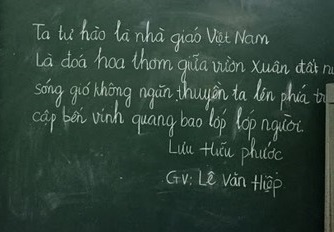 Ta tự hào là nhà giáo Việt Nam
Là đoá hoa thơm giữa vườn xuân đất
sóng gió không ngăn thuyền ta lên phía
cập bến vinh quang bao lớp lớp người.
Lưu Hữu phước
Gv: Lê Văn Hiệp